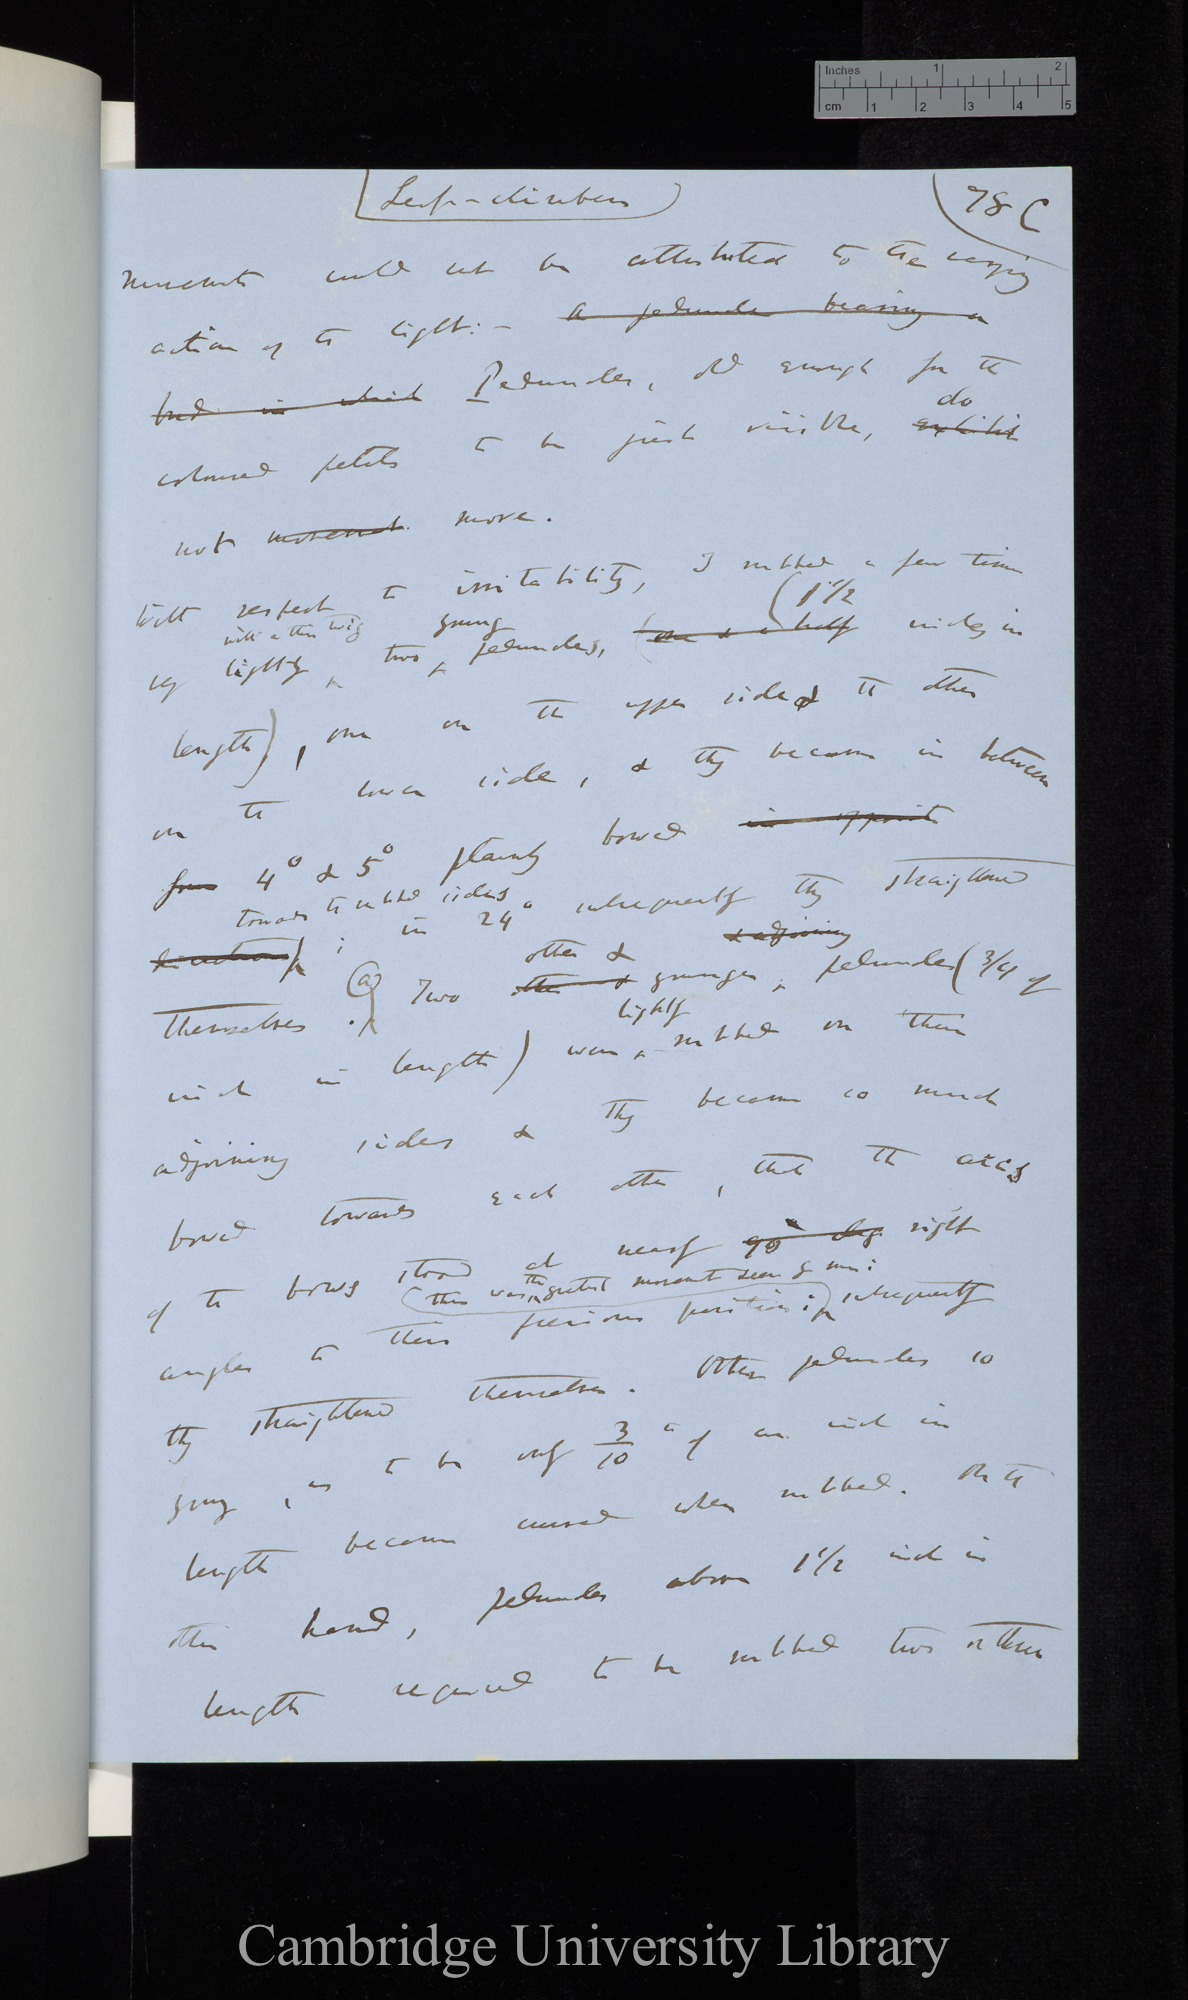 Inches 1 2
cm 1 2 3 4 5
Leaf-climbers
78 C
movements could not be attributed to the varying
action of the light:— a peduncle bearing a
bud in which Peduncles, old enough for the
do
coloured petals to be just visible, exhibit
not movement move.
With respect to irritability, I rubbed a few times
with a thin twig young (1 1/2
very lightly two peduncles, (one & a half inches in
length), one on the upper side & the other
on the lower side, & they became in between
from 4° & 5° plainly bowed in opposite
towards the rubbed sides
direction; in 24° subsequently they straightened
other & & adjoining
themselves. (a) Two other & younger peduncles (3/4 of
lightly
inch in length) were rubbed on their
adjoining sides & they became so much
bowed towards each other, that the arcs
of the bows stood at nearly 90° deg right
(this was the greatest movement seen by me:
angles to their previous position; subsequently
they straightened themselves. Other peduncles so
young, as to be only 3/10 of an inch in
length became curved when rubbed. On the
other hand, peduncles above 1 1/2 inch in
length required to be rubbed two or three
Cambridge University Library